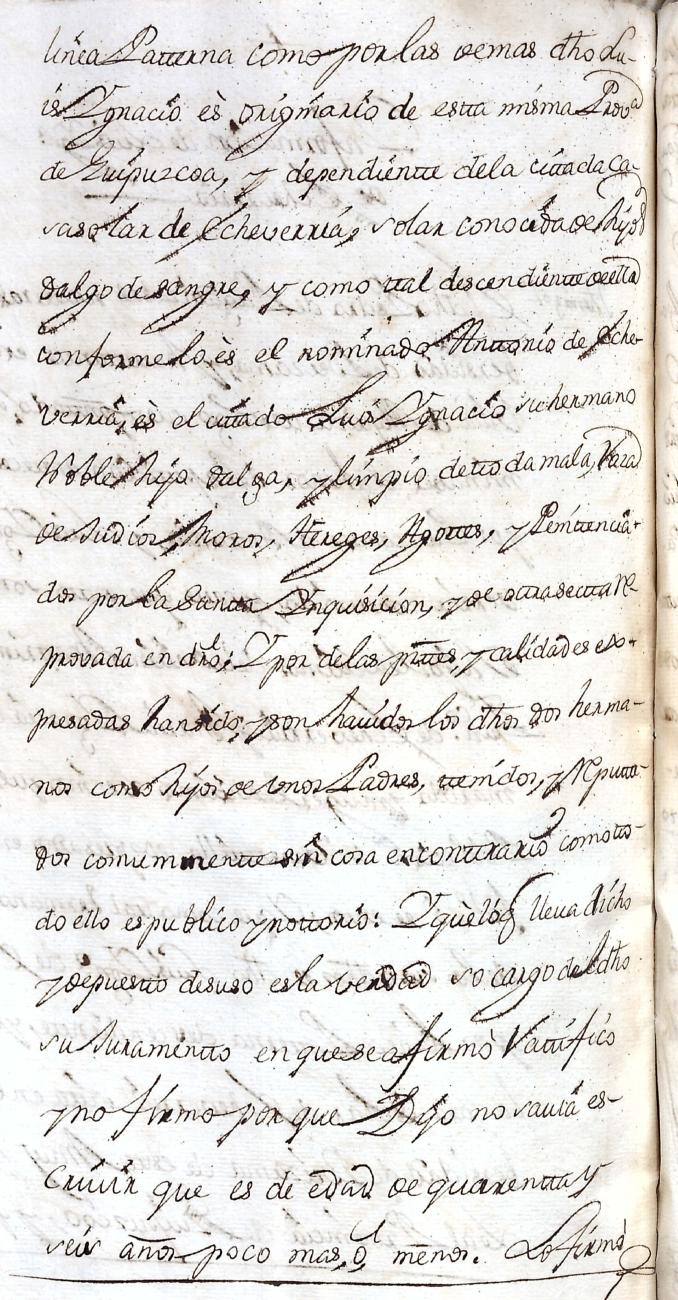 linea Patterna como por las demas dho Lu-
is Ygnacio es originario de estta misma Prova
de Guipuzcoa, y dependientte dela cittada Ca-
sa solar de Echeverria, solar conocida de hijos
dalgo de sangre, y como ttal descendientte de ella
conforme lo es el nominado Anttonio de Eche-
verria, es el cittado Luis Ygnacio su hermano
Noble hijo dalgo, y limpio de ttoda mala Raza
de Judios, Moros, Hereges, Agottes, y Penittencia-
dos por la Santta Ynquisicion, y de ottra sectta re-
provada en dro; Y por de las parttes, y calidades ex-
presadas han sido, y son havidos los dhos dos herma-
nos como hijos de unos Padres, ttenidos, y Reputta-
dos comunmentte sin cosa en conttrario como tto-
do ello es publico y nottorio: Y que lo q lleva dicho
y depuestto desuso es la verdad so cargo del dho
su Juramentto en que se afirmò Rattifico
y no firmo por que Dijo no savia es-
crivir que es de edad de quarentta y
seis años poco mas, ò menos. Lo firmò